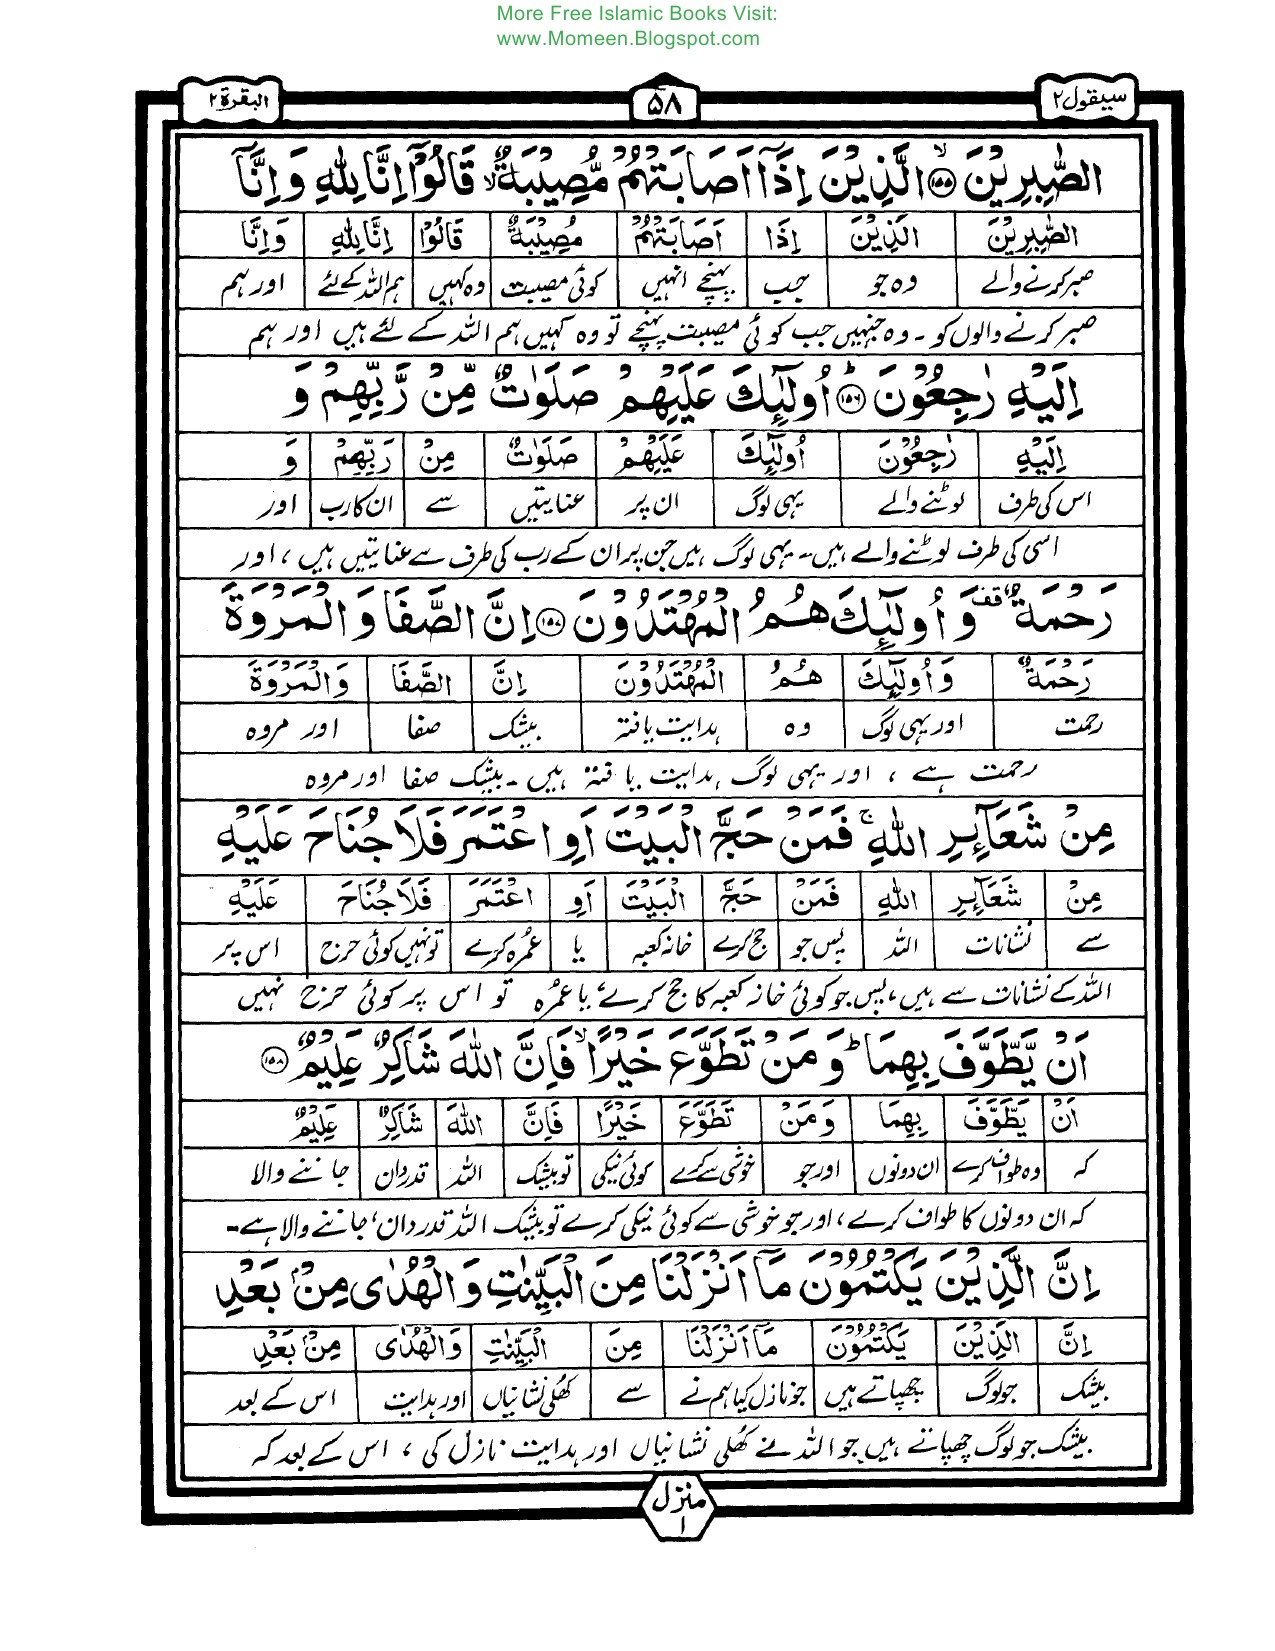 More Free Islamic Books Visit:
www.Momeen.Blogspot.com
سیقول ۲ ۵۸ البقرة ۲
الصّٰبِرِیْنَ ۙ﴿۱۵۵﴾ الَّذِیْنَ اِذَاۤ اَصَابَتْهُمْ مُّصِیْبَةٌ ۙ قَالُوْۤا اِنَّا لِلّٰهِ وَ اِنَّاۤ
الصّٰبِرِیْنَ الَّذِیْنَ اِذَا اَصَابَتْهُمْ مُصِیْبَةٌ قَالُوْا اِنَّا لِلّٰهِ وَاِنَّا
صبر کرنے والے وہ جو جب پہنچے انہیں کوئی مصیبت وہ کہیں ہم اللہ کے لئے اور ہم
صبر کرنے والوں کو ۔ وہ جنہیں جب کوئی مصیبت پہنچے تو وہ کہیں ہم اللہ کے لئے ہیں اور ہم
اِلَیْهِ رٰجِعُوْنَ ؕ﴿۱۵۶﴾ اُولٰٓئِكَ عَلَیْهِمْ صَلَوٰتٌ مِّنْ رَّبِّهِمْ وَ
اِلَیْهِ رٰجِعُوْنَ اُولٰٓئِكَ عَلَیْهِمْ صَلَوٰتٌ مِنْ رَبِّهِمْ وَ
اس کی طرف لوٹنے والے یہی لوگ ان پر عنایتیں سے ان کا رب اور
اسی کی طرف لوٹنے والے ہیں۔ یہی لوگ ہیں جن پر ان کے رب کی طرف سے عنایتیں ہیں ، اور
رَحْمَةٌ ۟ قف وَ اُولٰٓئِكَ هُمُ الْمُهْتَدُوْنَ ﴿۱۵۷﴾ اِنَّ الصَّفَا وَ الْمَرْوَةَ
رَحْمَةٌ وَ اُولٰٓئِكَ هُمُ الْمُهْتَدُوْنَ اِنَّ الصَّفَا وَالْمَرْوَةَ
رحمت اور یہی لوگ وہ ہدایت یافتہ بیشک صفا اور مروہ
رحمت ہے ، اور یہی لوگ ہدایت یافتہ ہیں ۔ بیشک صفا اور مروہ
مِنْ شَعَآئِرِ اللّٰهِ ۚ فَمَنْ حَجَّ الْبَیْتَ اَوِ اعْتَمَرَ فَلَا جُنَاحَ عَلَیْهِ
مِنْ شَعَآئِرِ اللّٰهِ فَمَنْ حَجَّ الْبَیْتَ اَوِ اعْتَمَرَ فَلَا جُنَاحَ عَلَیْهِ
سے نشانات اللہ پس جو حج کرے خانہ کعبہ یا عمرہ کرے تو نہیں کوئی حرج اس پر
اللہ کے نشانات سے ہیں ، پس جو کوئی خانہ کعبہ کا حج کرے یا عمرہ تو اس پر کوئی حرج نہیں
اَنْ یَّطَّوَّفَ بِهِمَا ؕ وَ مَنْ تَطَوَّعَ خَیْرًا ۙ فَاِنَّ اللّٰهَ شَاكِرٌ عَلِیْمٌ ﴿۱۵۸﴾
اَنْ یَطَّوَّفَ بِهِمَا وَمَنْ تَطَوَّعَ خَیْرًا فَاِنَّ اللّٰهَ شَاكِرٌ عَلِیْمٌ
کہ وہ طواف کرے ان دونوں اور جو خوشی سے کرے کوئی نیکی تو بیشک اللہ قدردان جاننے والا
کہ ان دونوں کا طواف کرے ، اور جو خوشی سے کوئی نیکی کرے تو بیشک اللہ قدردان ، جاننے والا ہے۔
اِنَّ الَّذِیْنَ یَكْتُمُوْنَ مَاۤ اَنْزَلْنَا مِنَ الْبَیِّنٰتِ وَ الْهُدٰی مِنْۢ بَعْدِ
اِنَّ الَّذِیْنَ یَكْتُمُوْنَ مَاۤ اَنْزَلْنَا مِنَ الْبَیِّنٰتِ وَالْهُدٰی مِنْۢ بَعْدِ
بیشک جو لوگ چھپاتے ہیں جو نازل کیا ہم نے سے کھلی نشانیاں اور ہدایت اس کے بعد
بیشک جو لوگ چھپاتے ہیں جو اللہ نے کھلی نشانیاں اور ہدایت نازل کی ، اس کے بعد کہ
منزل ۱